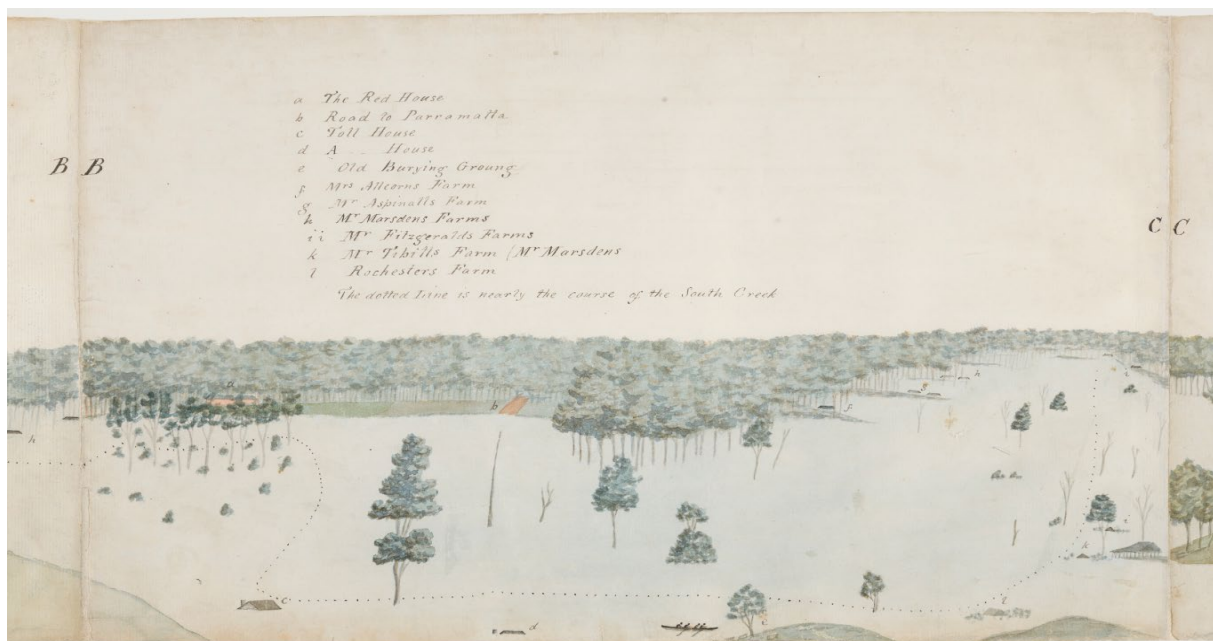 a The Red House
b Road to Parramatta
c Toll House
d A House
e Old Burying Groung
B B
f Mrs Allcorns Farm
g Mr Aspinalls Farm
h Mr Marsdens Farms
C C
i i Mr Fitzgeralds Farms
k Mr Tibills Farm (Mr Marsdens
l Rochesters Farm
The dotted Line is nearly the course of the South Creek
a
h
g
b
f
h
k
l
c
d